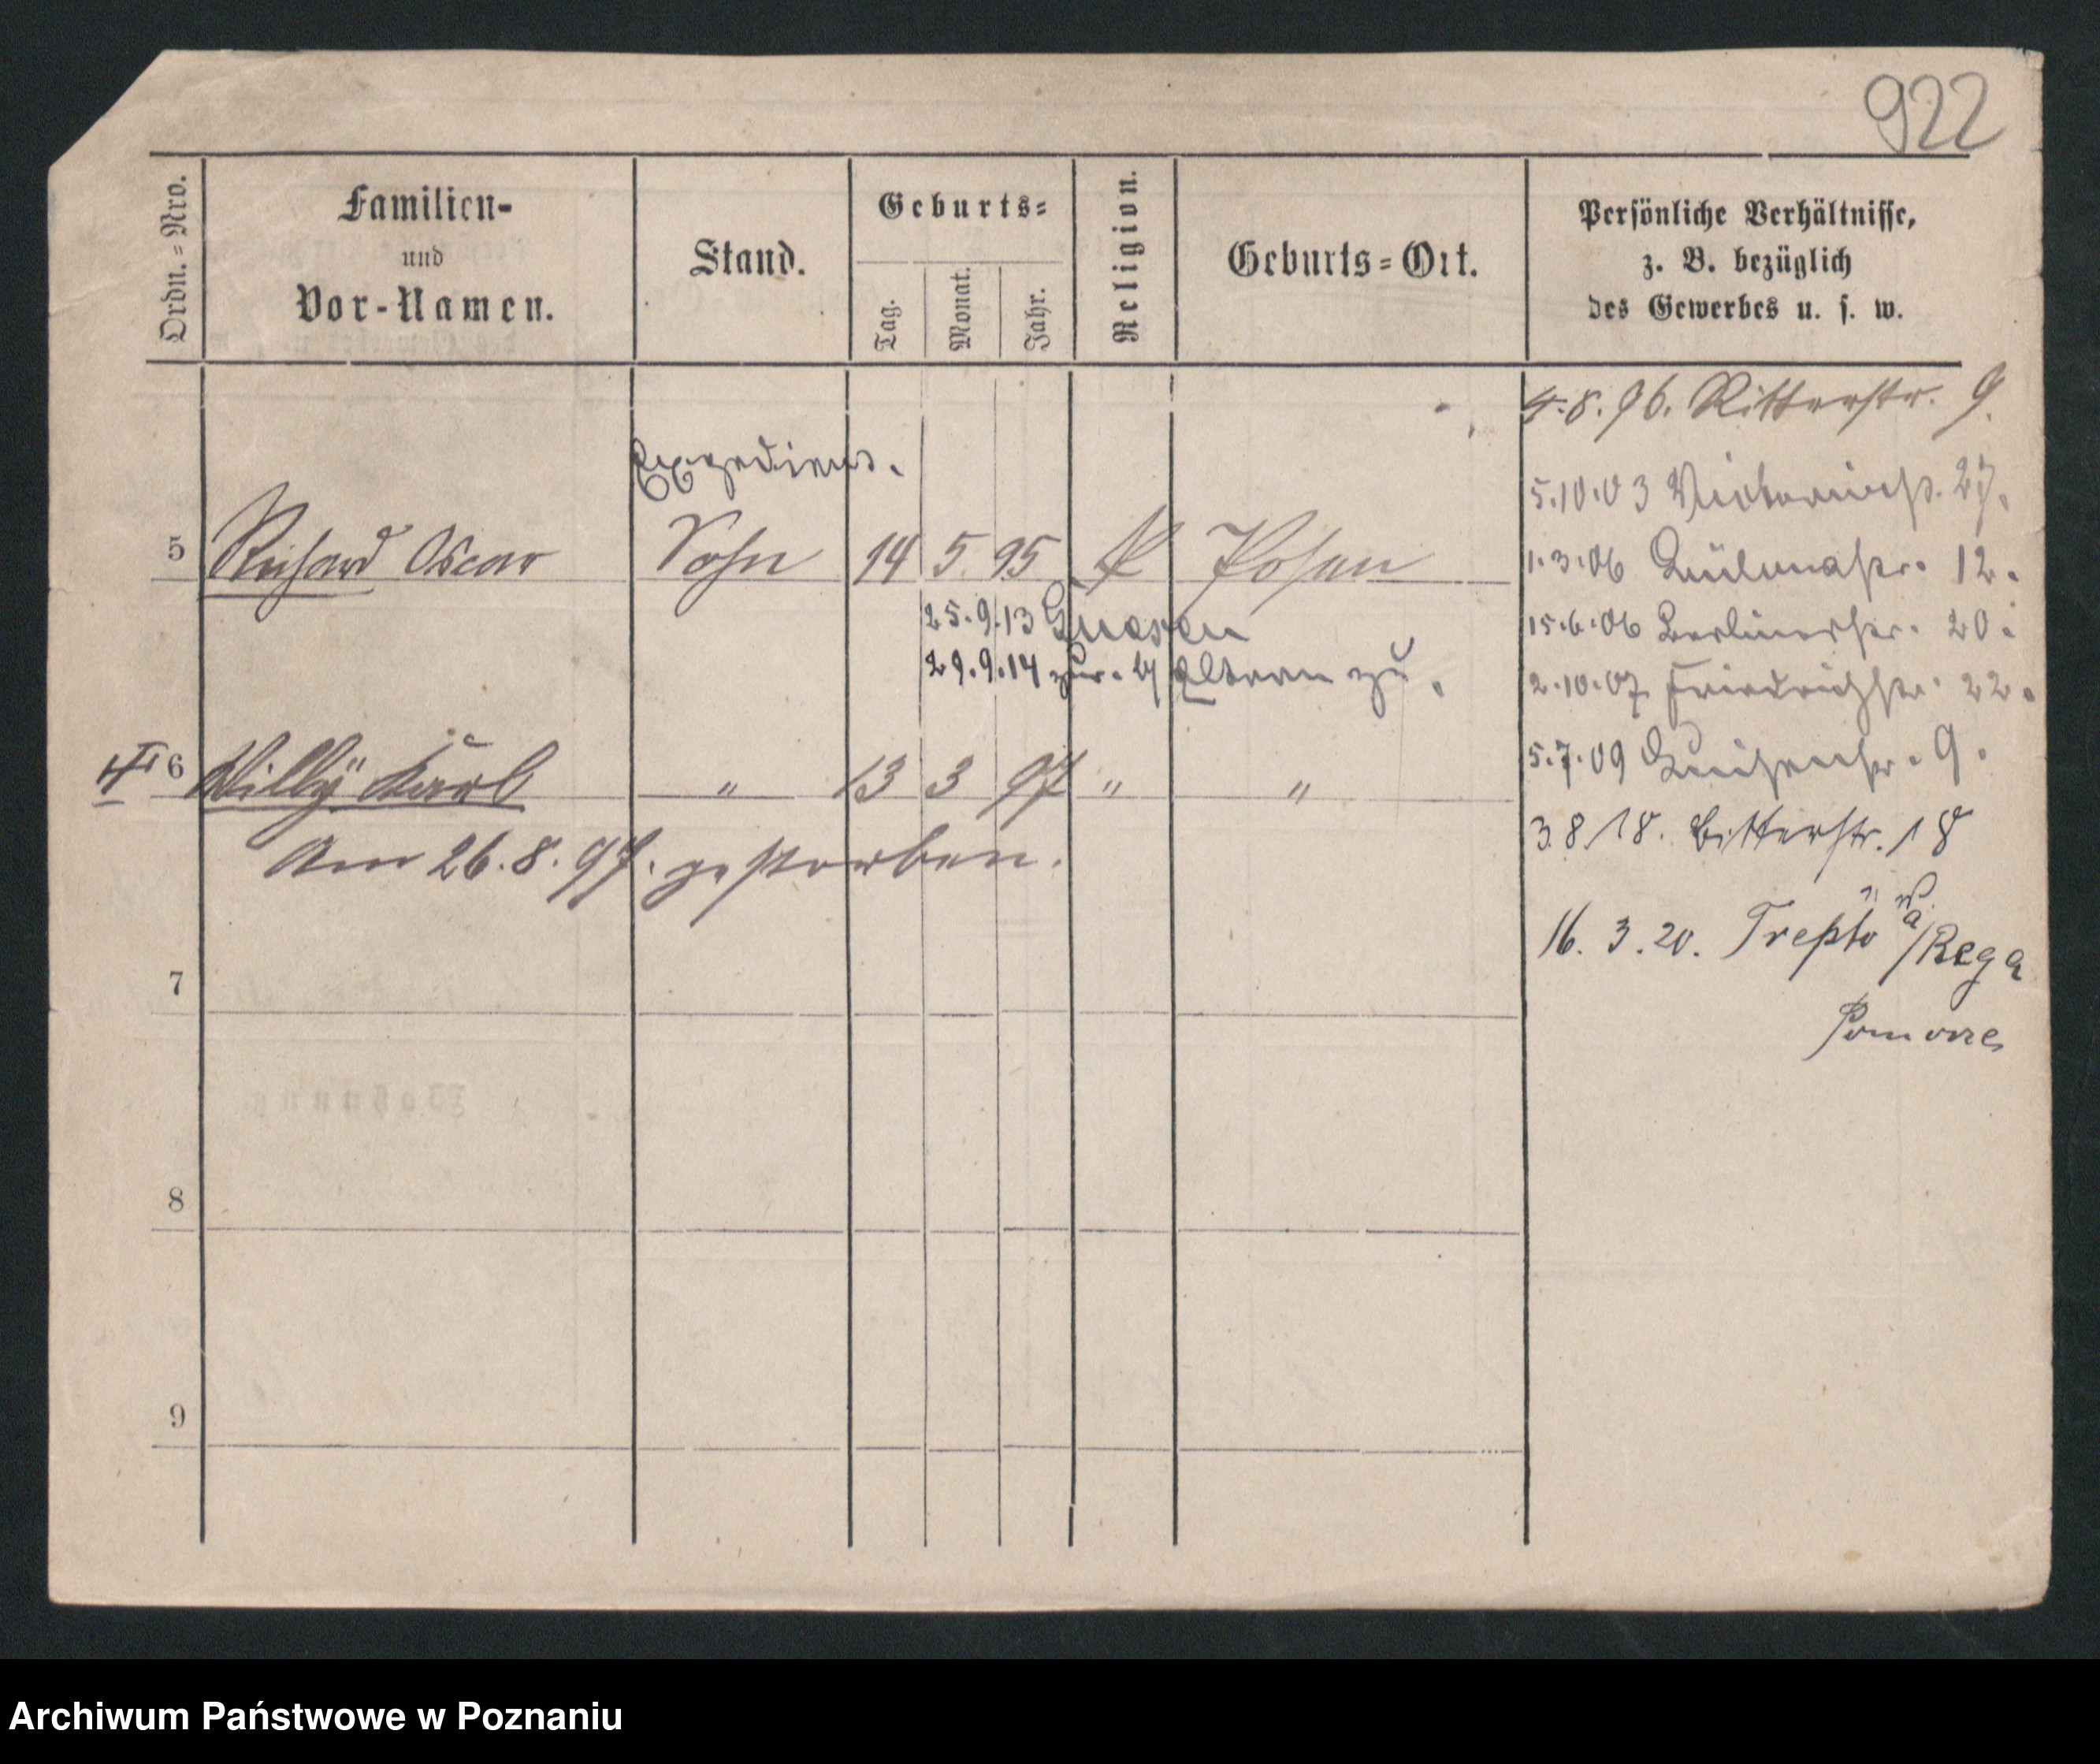 922
Ordn.=Nro.
Familien-
und
Vor-Namen.
Stand.
Geburts=
Tag.
Monat.
Jahr.
Religion.
Geburts=Ort.
Persönliche Verhältnisse,
z. B. bezüglich
des Gewerbes u. s. w.
4.8.96. Ritterstr. 9.
Expedient.
5.10.03 Victoriastr. 27.
5 Richard Oscar Sohn 14 5 95 Posen
1.3.06 12.
25.9.13 Gnesen
15.6.06 Berlinerstr. 20.
29.9.14 zur. Eltern zu.
2.10.07 Friedrichstr. 22.
6 Willÿ Karl " 13 3 97 " "
5.7.09 Luisenstr. 9.
Am 26.8.97. gestorben.
3.8.18. Ritterstr. 18
16.3.20. Treptow a/Rega
7
8
9
Archiwum Państwowe w Poznaniu